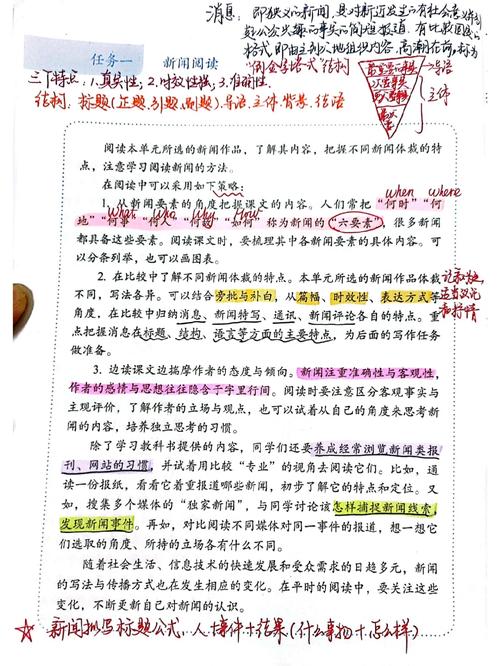 消息：即狭义的新闻，是对新近发生的有社会意义并
真公众兴趣的事实的简短报道。有比较固定的
格式，即由主到次地组织内容，高潮在前，称为
"倒金字塔式"结构
导语
主体
任务一 新闻阅读
三个特点：1.真实性；2.时效性强；3.准确性。
结构：标题(正题、引题、副题)、导语、主体、背景、结语
阅读本单元所选的新闻作品，了解其内容，把握不同新闻体裁的特
点，注意学习阅读新闻的方法。
在阅读中可以采用如下策略：
when where
1. 从新闻要素的角度把握课文的内容。人们常把"何时""何
What Who Why How
地""何事""何人""何故""如何"称为新闻的"六要素"，很多新闻
都具备这些要素。阅读课文时，要梳理其中各新闻要素的具体内容。可
以分条列举，也可以画图表。
2. 在比较中了解不同新闻体裁的特点。本单元所选的新闻作品体裁
不同，写法各异。可以结合旁批与补白，从篇幅、时效性、表达方式等
角度，在比较中归纳消息、新闻特写、通讯、新闻评论各自的特点。重
点把握消息在标题、结构、语言等方面的主要特点，为后面的写作任务
做准备。
记录为主
适当议论
和抒情
3. 边读课文边揣摩作者的态度与倾向。新闻注重准确性与客观性，
作者的感情与思想往往隐含于字里行间。阅读时要注意区分客观事实与
主观评价，了解作者的立场与观点，也可以试着从自己的角度来思考新
闻的内容，培养独立思考的习惯。
除了学习教科书提供的内容，同学们还要养成经常浏览新闻类报
刊、网站的习惯，并试着用比较"专业"的视角去阅读它们。比如，通
读一份报纸，看看它着重报道哪些新闻，初步了解它的特点和定位。又
如，搜集多个媒体的"独家新闻"，与同学讨论该怎样捕捉新闻线索，
发现新闻事件。再如，对比阅读不同媒体对同一事件的报道，想一想它
们选取的角度、所持的立场各有什么不同。
随着社会生活、信息技术的快速发展和受众需求的日趋多元，新闻
的写法与传播方式也在发生相应的变化。在平时的阅读中，要关注这些
变化，不断更新自己对新闻的认识。
新闻拟写标题公式：人+事件+结果(什么事物+怎么样)